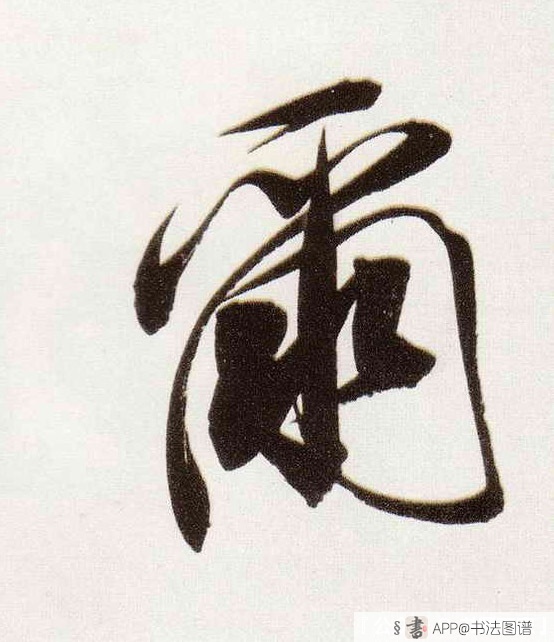 爾
書 APP@书法图谱